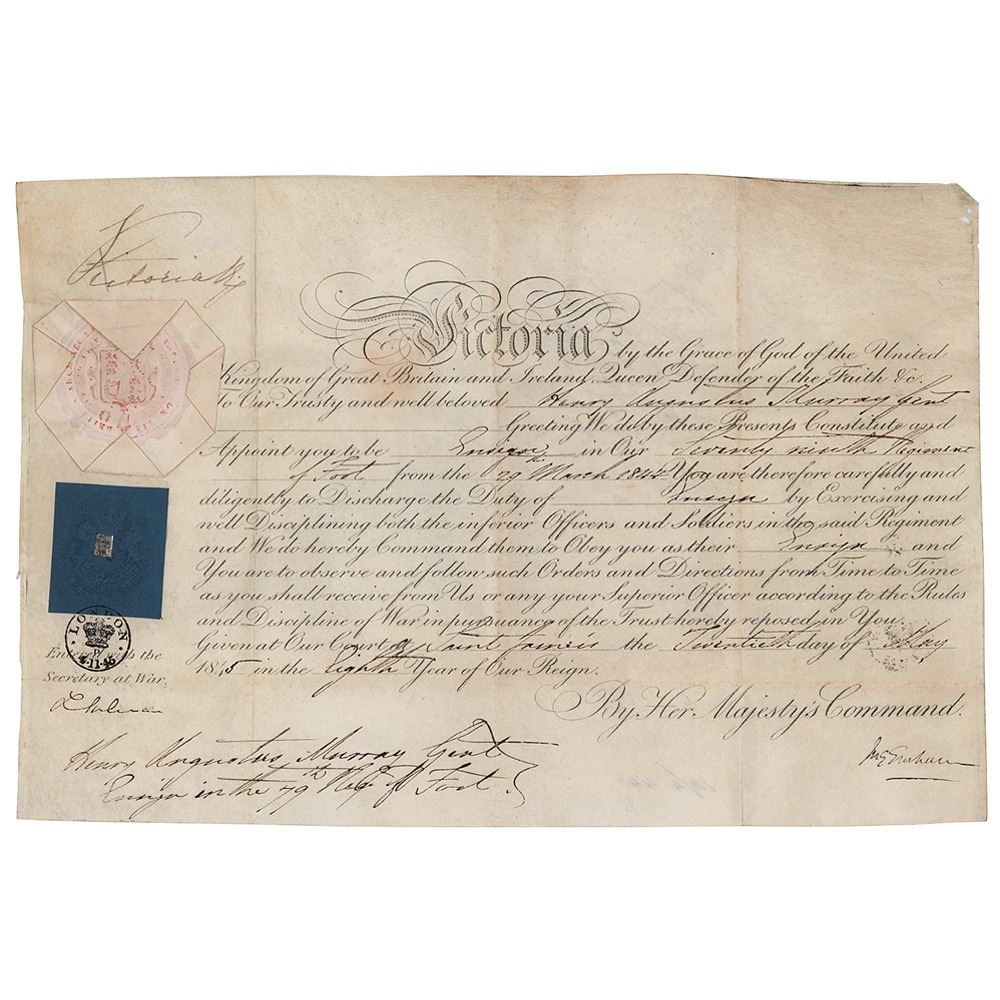 Victoria R
Victoria by the Grace of God of the United
Kingdom of Great Britain and Ireland, Queen Defender of the Faith &c.
To Our Trusty and well beloved Henry Augustus Murray Gent
Greeting We do by these Presents Constitute and
Appoint you to be Ensign in Our Seventy ninth Regiment
of Foot from the 29th March 1844 You are therefore carefully and
diligently to Discharge the Duty of Ensign by Exercising and
well Disciplining both the inferior Officers and Soldiers in the said Regiment
and We do hereby Command them to Obey you as their Ensign and
You are to observe and follow such Orders and Directions from Time to Time
as you shall receive from Us or any your Superior Officer according to the Rules
and Discipline of War in pursuance of the Trust hereby reposed in You
Given at Our Court of Saint James's the Twentieth day of May
1845 in the Eighth Year of Our Reign.
By Her Majesty's Command.
LONDON
4-11-45
the
Secretary at War
Henry Augustus Murray Gent
Ensign in the 79th Regt of Foot